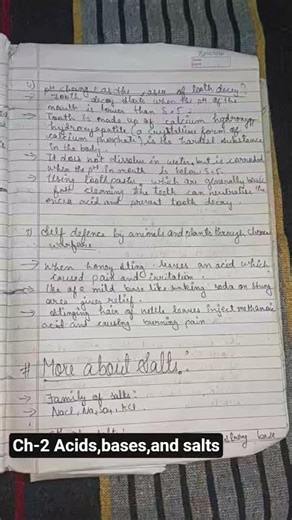 pH change as the cause of tooth decay?
→ Tooth decay starts when the pH of the
mouth is lower than 5.5.
→ Tooth is made up of calcium
hydroxyapatite (a crystalline form of
calcium phosphate) is the hardest substance
in the body.
→ It does not dissolve in water, but is corroded
when the pH in mouth is below 5.5.
→ Using toothpaste which are generally basic
for cleaning the teeth can neutralise the
acid and prevent tooth decay.
Self defence by animals and plants through chemical
warfare
→ When honey sting leaves an acid which
caused pain and irritation.
→ Use of a mild base like baking soda on stung
area gives relief.
→ Stinging hair of nettle leaves inject methanoic
acid and causing burning pain.
# More about Salts:
→ Family of salts:
→ NaCl, Na2SO4, KCl
Ch-2 Acids,bases,and salts
strong base